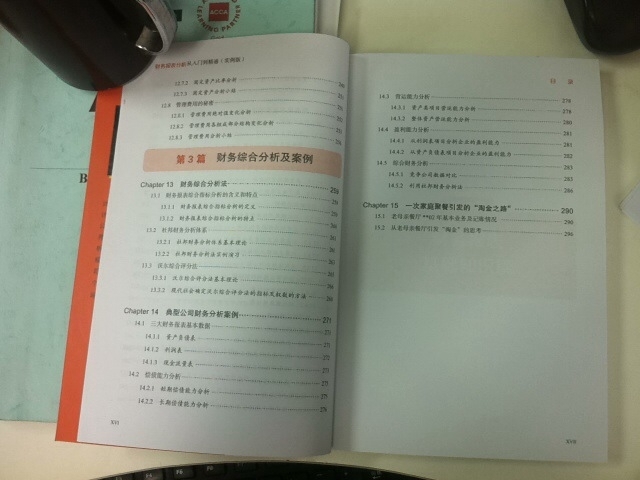 ACCA
LEARNING PARTNER
B
财务报表分析从入门到精通（实例版）
12.7.2 固定资产比率分析
12.7.3 固定资产分析小结
12.8 管理费用的秘密
12.8.1 管理费用绝对值变化分析
12.8.2 管理费用各组成部分结构变化分析
12.8.3 管理费用分析小结
第3篇 财务综合分析及案例
Chapter 13 财务综合分析法 259
13.1 财务报表综合指标分析的含义和特点
13.1.1 财务报表综合指标分析的定义
13.1.2 财务报表综合指标分析的特点
13.2 杜邦财务分析体系
13.2.1 杜邦财务分析体系基本理论
13.2.2 杜邦财务分析法实例演习
13.3 沃尔综合评分法
13.3.1 沃尔综合评分法基本理论
13.3.2 现代社会确定沃尔综合评分法的指标及权数的方法
Chapter 14 典型公司财务分析案例 271
14.1 三大财务报表基本数据 271
14.1.1 资产负债表 271
14.1.2 利润表
14.1.3 现金流量表
14.2 偿债能力分析 275
14.2.1 短期偿债能力分析 275
14.2.2 长期偿债能力分析 276
XVI
目 录
14.3 营运能力分析 278
14.3.1 资产各项目营运能力分析 278
14.3.2 整体资产营运能力分析 281
14.4 盈利能力分析 281
14.4.1 从利润表项目分析企业的盈利能力 281
14.4.2 从资产负债表项目分析企业的盈利能力
14.5 综合财务分析
14.5.1 竞争公司数据对比
14.5.2 利用杜邦财务分析法 286
Chapter 15 一次家庭聚餐引发的“淘金之路” 290
15.1 老母亲餐厅**02年基本业务及记账情况 290
15.2 从老母亲餐厅引发“淘金”的思考 296
XVII